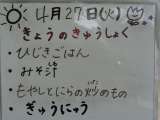 4月27日(火)
きょうのきゅうしょく
・ひじきごはん
・みそ汁
・もやしとにらの炒めもの
・ぎゅうにゅう